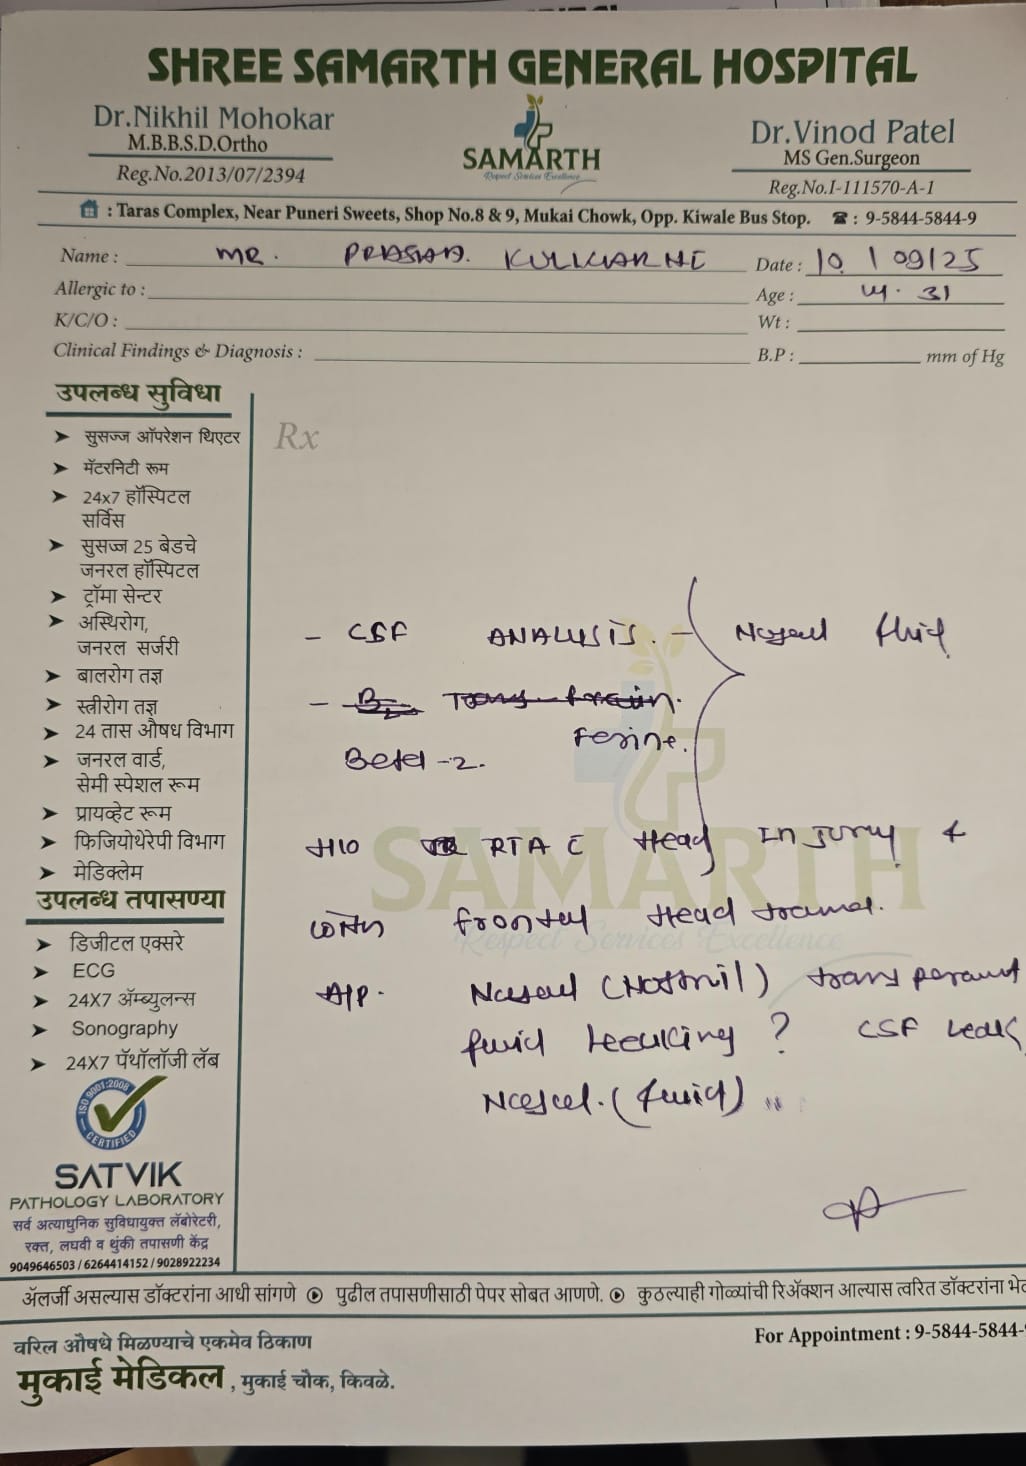 SHREE SAMARTH GENERAL HOSPITAL
Dr.Nikhil Mohokar
M.B.B.S.D.Ortho
Reg.No.2013/07/2394
SAMARTH
Respect Services Excellence
Dr.Vinod Patel
MS Gen.Surgeon
Reg.No.I-111570-A-1
: Taras Complex, Near Puneri Sweets, Shop No.8 & 9, Mukai Chowk, Opp. Kiwale Bus Stop. ☎ : 9-5844-5844-9
Name : MR. PRASAD. KULKARNI Date : 10 / 09/25
Allergic to : Age : 31
K/C/O : Wt :
Clinical Findings & Diagnosis : B.P : mm of Hg
उपलब्ध सुविधा
➤ सुसज्ज ऑपरेशन थिएटर
➤ मॅटरनिटी रूम
➤ 24x7 हॉस्पिटल
सर्विस
➤ सुसज्ज 25 बेडचे
जनरल हॉस्पिटल
➤ ट्रॉमा सेन्टर
➤ अस्थिरोग,
जनरल सर्जरी
➤ बालरोग तज्ञ
➤ स्त्रीरोग तज्ञ
➤ 24 तास औषध विभाग
➤ जनरल वार्ड,
सेमी स्पेशल रूम
➤ प्रायव्हेट रूम
➤ फिजियोथेरेपी विभाग
➤ मेडिक्लेम
उपलब्ध तपासण्या
➤ डिजीटल एक्सरे
➤ ECG
➤ 24X7 ॲम्ब्युलन्स
➤ Sonography
➤ 24X7 पॅथॉलॉजी लॅब
ISO 9001:2008
CERTIFIED
SATVIK
PATHOLOGY LABORATORY
सर्व अत्याधुनिक सुविधायुक्त लॅबोरेटरी,
रक्त, लघवी व थुंकी तपासणी केंद्र
9049646503 / 6264414152 / 9028922234
Rx
- CSF ANALYSIS. - Nasal fluid
- Trans
Beta-2. Ferine.
H/O RTA c Head Injury &
with frontal Head trauma.
Nasal (Nostril) transparant
fluid leaking ? CSF Leak
Nasal. (fluid)
SAMARTH
Respect Services Excellence
ॲलर्जी असल्यास डॉक्टरांना आधी सांगणे पुढील तपासणीसाठी पेपर सोबत आणणे. कुठल्याही गोळ्यांची रिॲक्शन आल्यास त्वरित डॉक्टरांना
वरिल औषधे मिळण्याचे एकमेव ठिकाण
For Appointment : 9-5844-5844-
मुकाई मेडिकल, मुकाई चौक, किवळे.